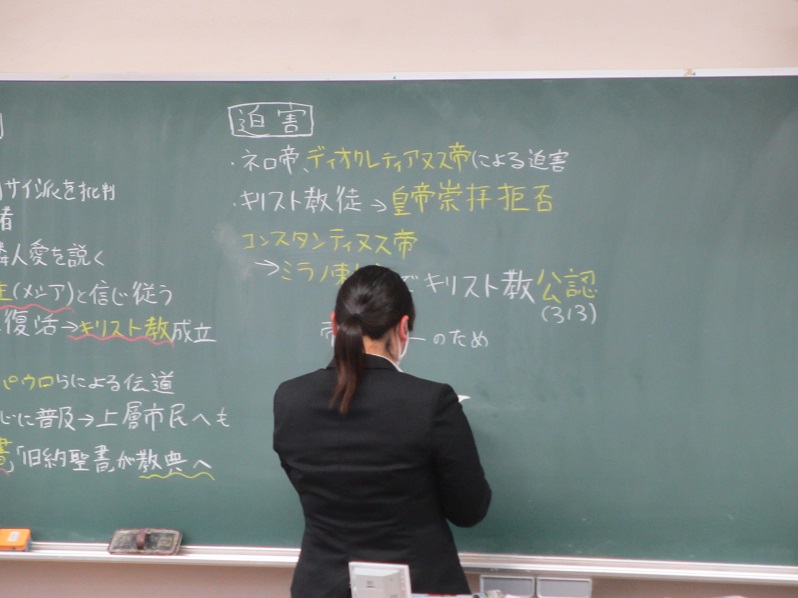 サイ派を批判
者
隣人愛を説く
(メシア)と信じ従う
復活→キリスト教成立
パウロらによる伝道
に普及→上層市民へも
書」「旧約聖書」が教典へ
迫害
・ネロ帝、ディオクレティアヌス帝による迫害
・キリスト教徒→皇帝崇拝拒否
コンスタンティヌス帝
→ミラノ でキリスト教公認
(313)
帝 一のため